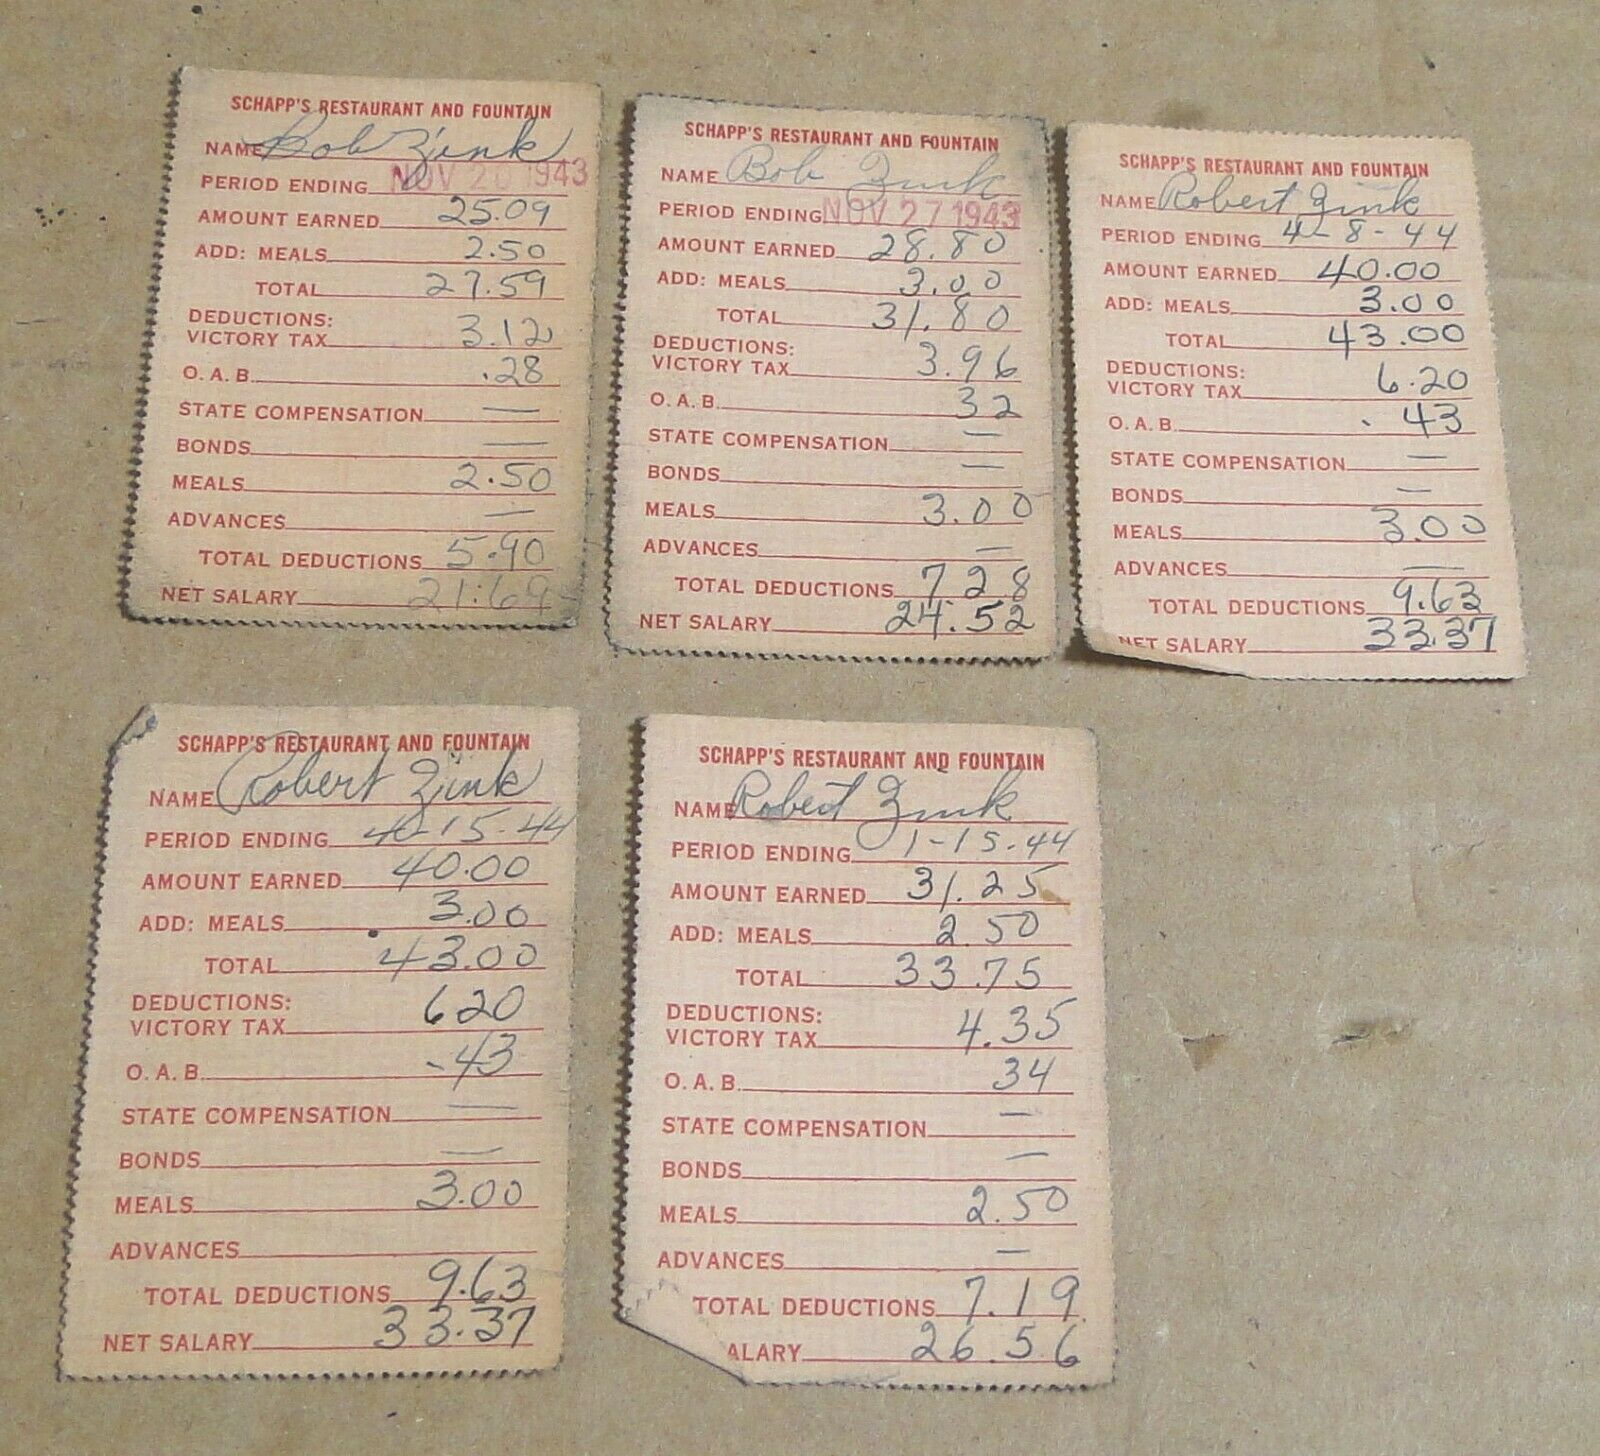 SCHAPP'S RESTAURANT AND FOUNTAIN
NAME Bob Zink
PERIOD ENDING NOV 20 1943
AMOUNT EARNED 25.09
ADD: MEALS 2.50
TOTAL 27.59
DEDUCTIONS:
VICTORY TAX 3.12
O. A. B. .28
STATE COMPENSATION —
BONDS —
MEALS 2.50
ADVANCES —
TOTAL DEDUCTIONS 5.90
NET SALARY 21.69
SCHAPP'S RESTAURANT AND FOUNTAIN
NAME Bob Zink
PERIOD ENDING NOV 27 1943
AMOUNT EARNED 28.80
ADD: MEALS 3.00
TOTAL 31.80
DEDUCTIONS:
VICTORY TAX 3.96
O. A. B. 32
STATE COMPENSATION —
BONDS —
MEALS 3.00
ADVANCES —
TOTAL DEDUCTIONS 7 28
NET SALARY 24.52
SCHAPP'S RESTAURANT AND FOUNTAIN
NAME Robert Zink
PERIOD ENDING 4-8-44
AMOUNT EARNED 40.00
ADD: MEALS 3.00
TOTAL 43.00
DEDUCTIONS:
VICTORY TAX 6.20
O. A. B. .43
STATE COMPENSATION —
BONDS —
MEALS 3.00
ADVANCES —
TOTAL DEDUCTIONS 9.63
NET SALARY 33.37
SCHAPP'S RESTAURANT AND FOUNTAIN
NAME Robert Zink
PERIOD ENDING 4-15-44
AMOUNT EARNED 40.00
ADD: MEALS 3.00
TOTAL 43.00
DEDUCTIONS:
VICTORY TAX 620
O. A. B. .43
STATE COMPENSATION —
BONDS —
MEALS 3.00
ADVANCES
TOTAL DEDUCTIONS 9.63
NET SALARY 33.37
SCHAPP'S RESTAURANT AND FOUNTAIN
NAME Robert Zink
PERIOD ENDING 1-15-44
AMOUNT EARNED 31.25
ADD: MEALS 2.50
TOTAL 33.75
DEDUCTIONS:
VICTORY TAX 4.35
O. A. B. 34
STATE COMPENSATION —
BONDS —
MEALS 2.50
ADVANCES —
TOTAL DEDUCTIONS 7.19
ALARY 26.56